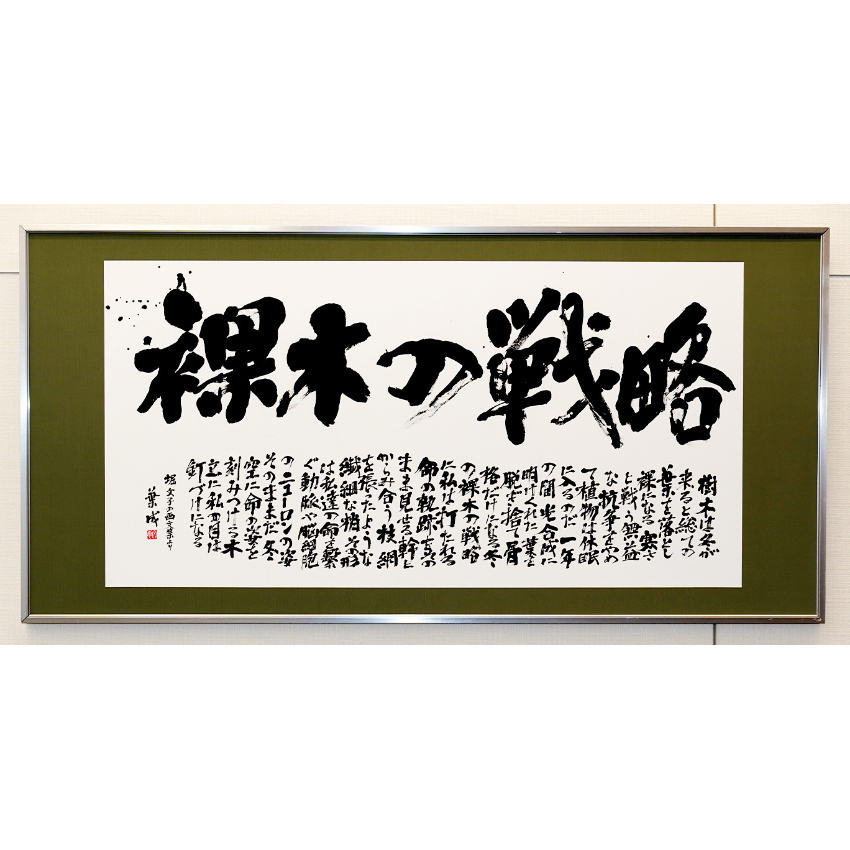 裸木の戦略
樹木は冬が
来ると総ての
葉を落とし
裸になる 寒さ
と戦う無益
な抗争をやめ
て植物は休眠
に入るのだ 一年
の間光合成に
明けくれた葉を
脱ぎ捨て骨
格だけになる冬
の裸木の戦略
に私は打たれる
命の軌跡をその
まま見せる幹と
からみ合う枝 網
を張ったような
繊細な梢 その形
は私達の命を繋
ぐ動脈や脳細胞
のニューロンの姿
そのままだ 冬
空に命の姿を
刻みつける木
立に私の目は
釘づけになる
堀文子の画文集より
葉成